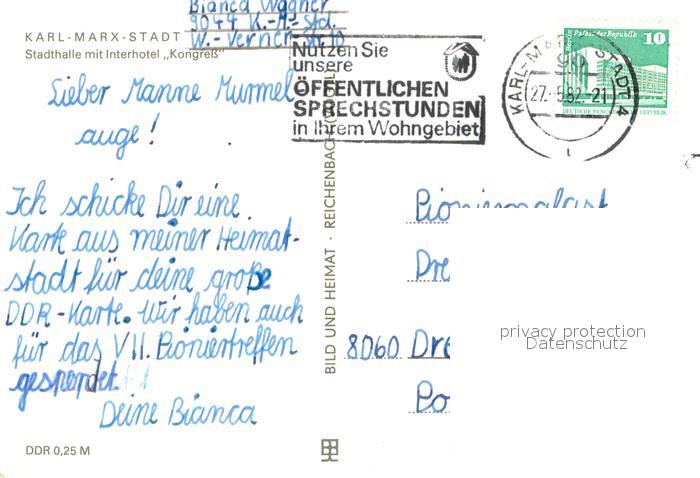 Bianca Wagner
9044 K.-M.-Std.
W.-Werner-Str. 10
KARL-MARX-STADT
Stadthalle mit Interhotel „Kongreß"
Nutzen Sie
unsere
ÖFFENTLICHEN
SPRECHSTUNDEN
in Ihrem Wohngebiet
KARL-MARX-STADT 4
90
27.-5.82.-21
Berlin Palast der Republik
10
DEUTSCHE DEMOKRATISCHE REPUBLIK
Lieber Manne Murmel-
auge!
Ich schicke Dir eine
Karte aus meiner Heimat-
stadt für deine große
DDR-Karte. Wir haben auch
für das VII. Pioniertreffen
gespendet.
Deine Bianca
BILD UND HEIMAT · REICHENBACH
Pionierpalast
Dre
8060 Dre
Po
privacy protection
Datenschutz
DDR 0,25 M